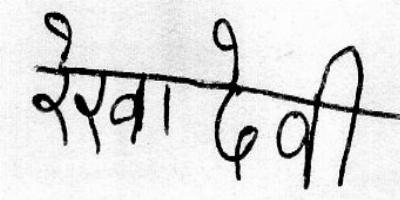 रेखा देवी